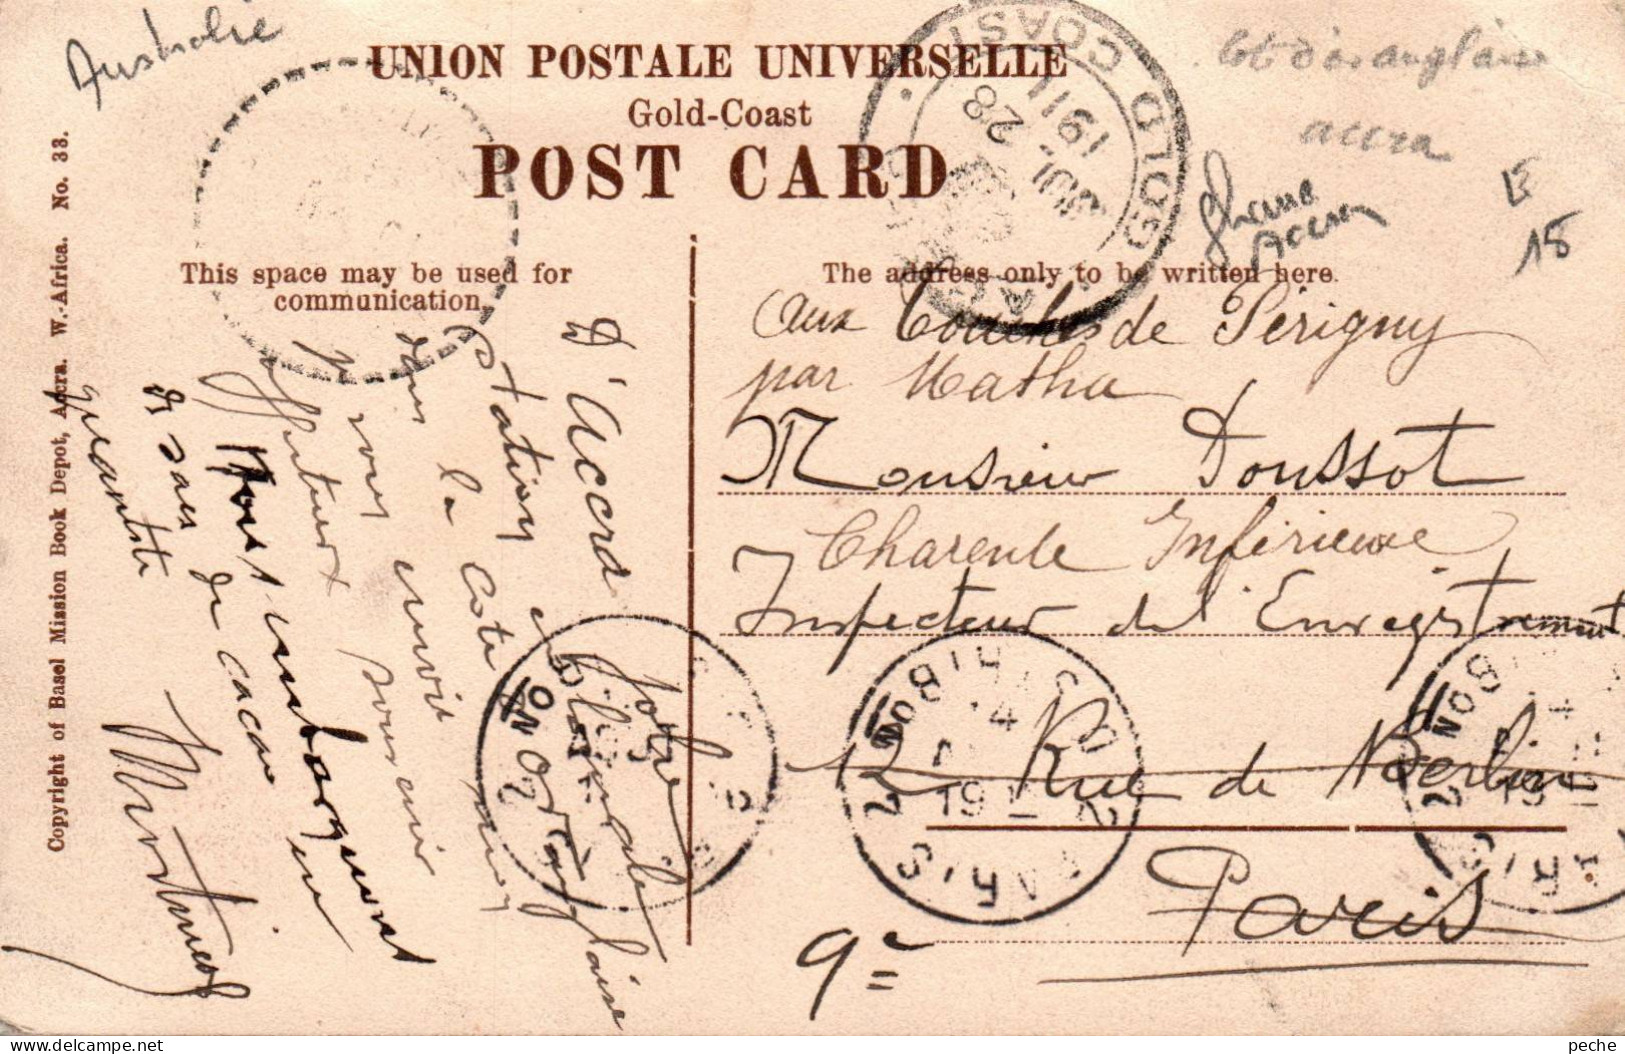 Australie
UNION POSTALE UNIVERSELLE
Gold-Coast
POST CARD
anglaise
accra
Ghana
Accra
15
GOLD COAST
JUL 28
1911
This space may be used for
communication.
The address only to be written here.
Copyright of Basel Mission Book Depot, Accra. W.-Africa. No. 33.
D'Accra jolie
station coloniale
dans la Côte d'or anglaise
je vous envoie mon
affectueux souvenir
Nous embarquons
de cacao
quantité
aux Touches de Périgny
par Matha
Monsieur Toussot
Charente Inférieure
Inspecteur de l'Enregistrement
12 Rue de Berlin
Paris
9e
PARIS
DISTRIBUTION
peche
delcampe.net